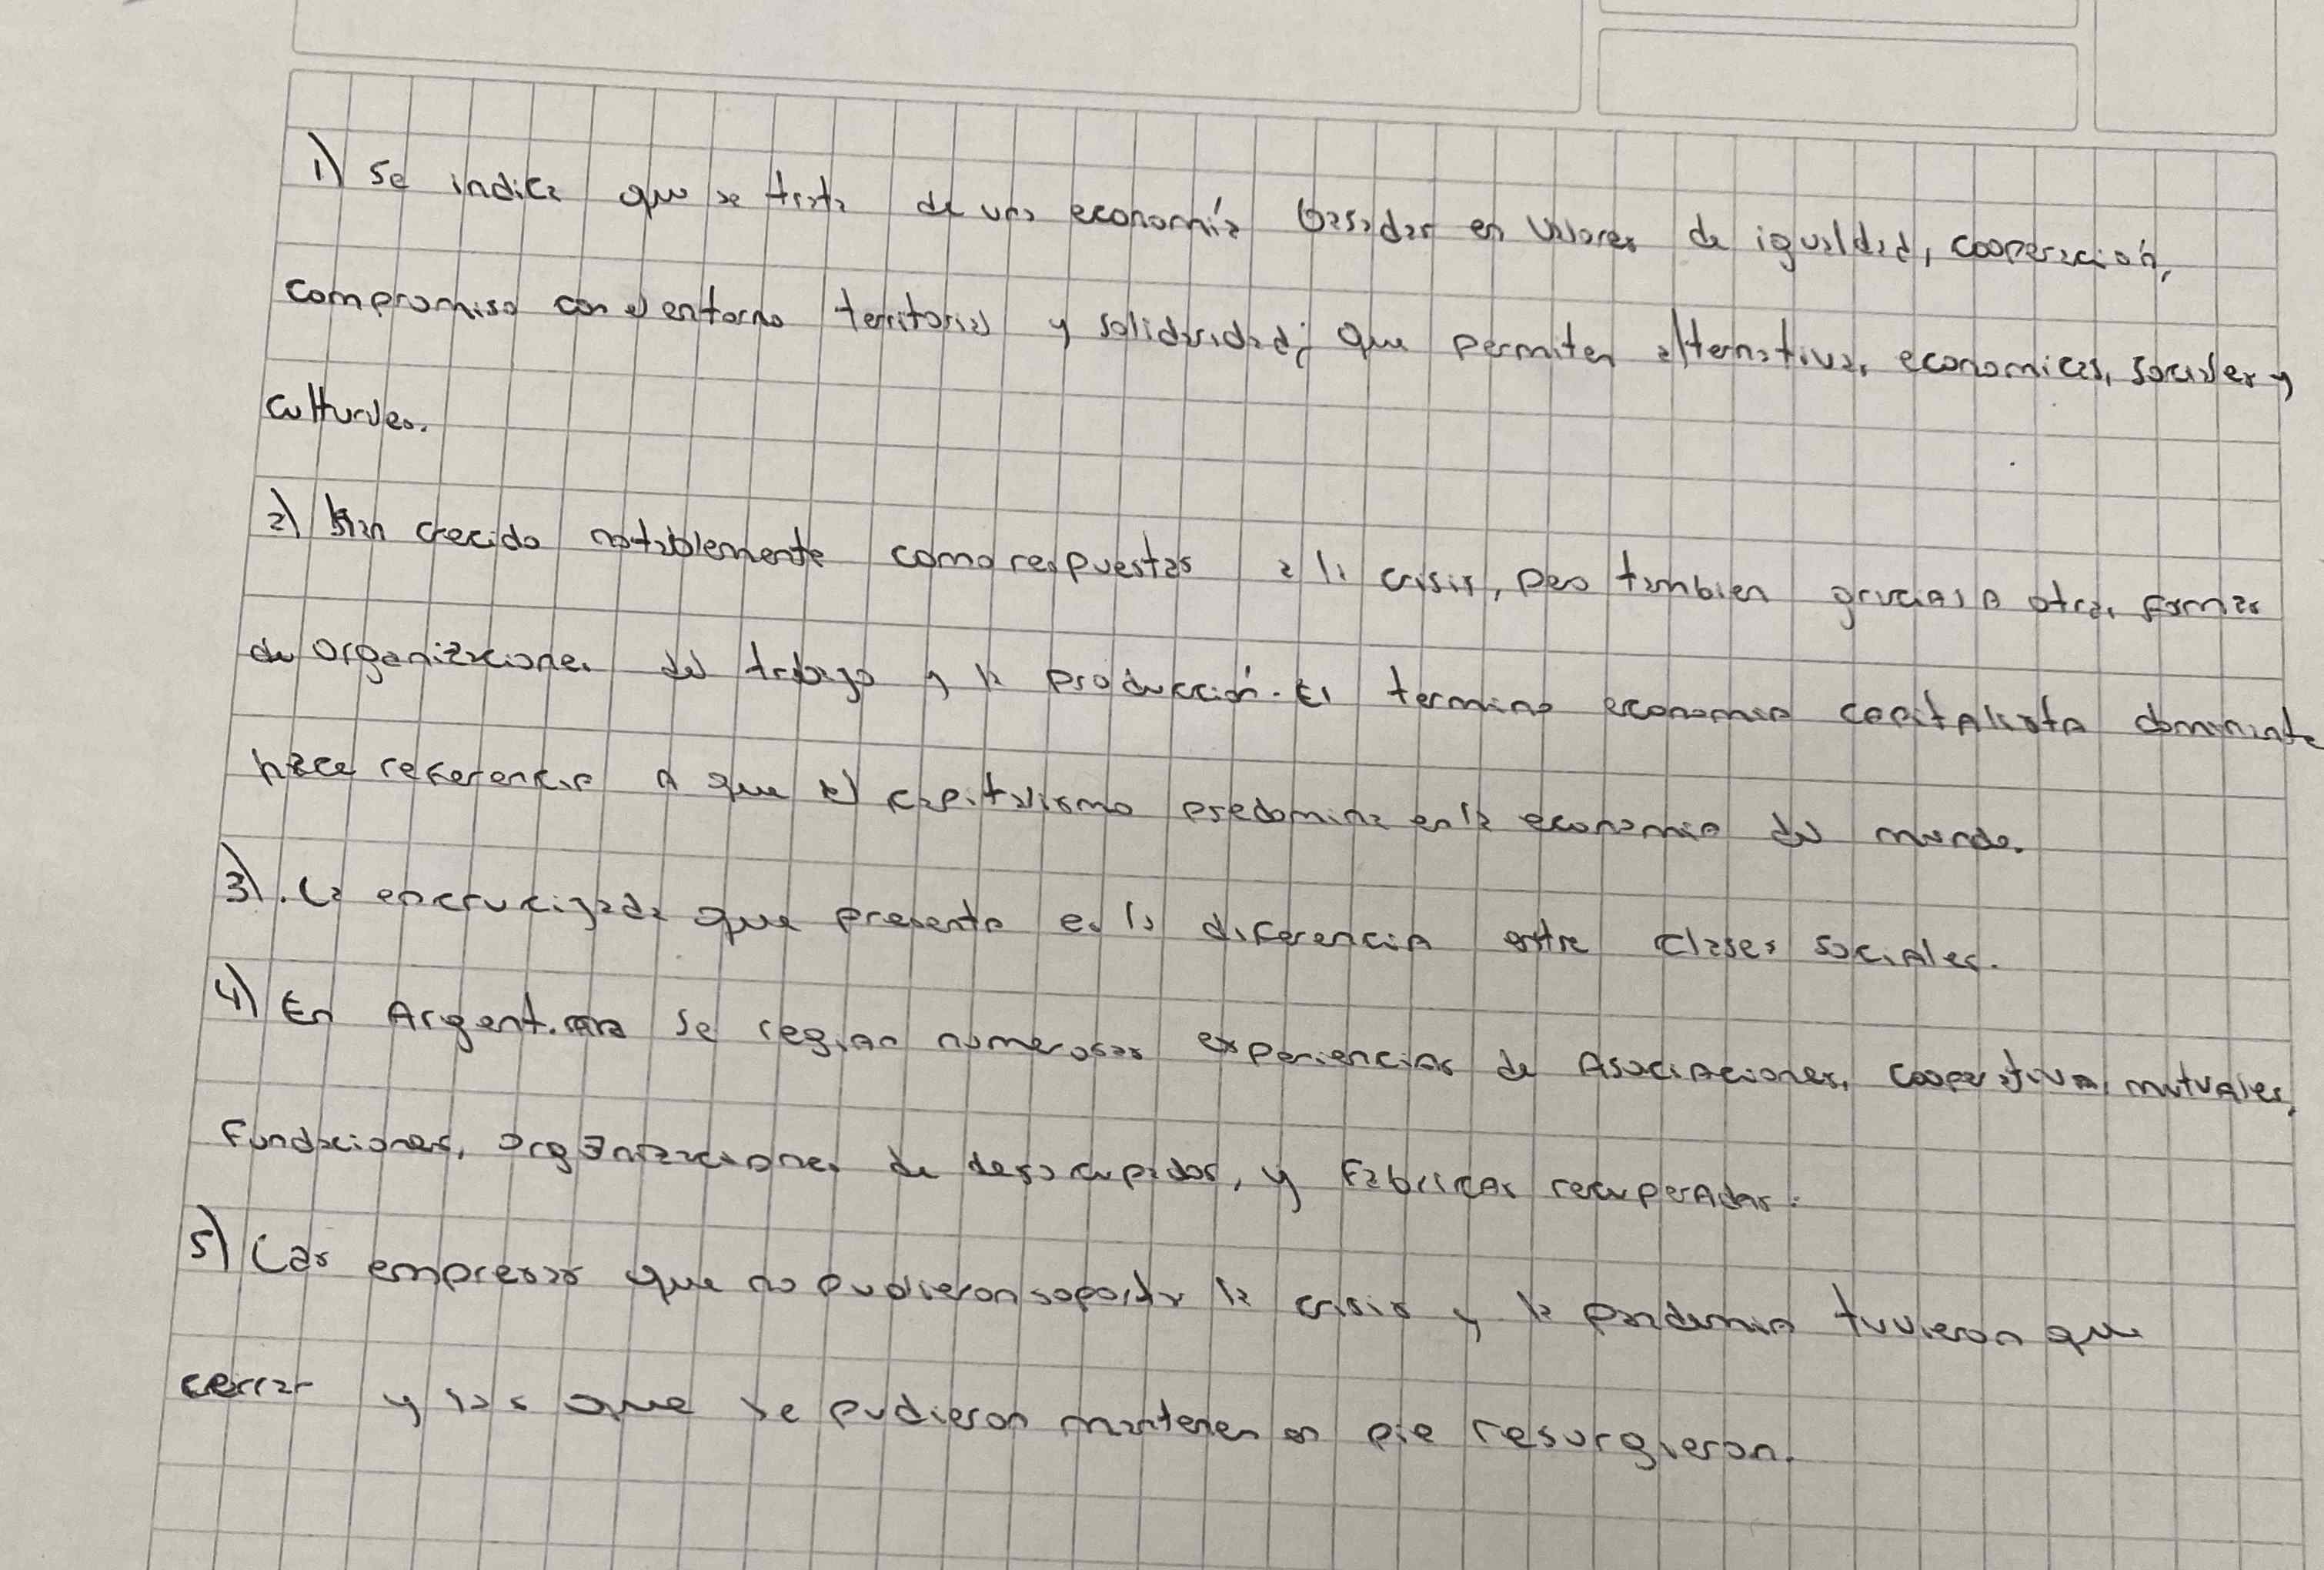 1) Se indica que se trata de una economía basadas en valores de igualdad, cooperación,
compromiso con el entorno territorial y solidaridad; que permiten alternativas, economicas, sociales y
culturales.
2) Han crecido notablemente como respuestas a la crisis, pero tambien gracias a otras formas
de organizaciones del trabajo y la producción. El termino economia capitalista dominante
hace referencia a que el capitalismo predomina en la economia del mundo.
3). La encrucijada que presenta es la diferencia entre clases sociales.
4) En Argentina se regian numerosas experiencias de Asociaciones, cooperativas, mutuales,
Fundaciones, organizaciones de desocupados, y Fabricas recuperadas.
5) Las empresas que no pudieron soportar la crisis y la pandemia tuvieron que
cerrar y las que se pudieron mantener en pie resurgieron.